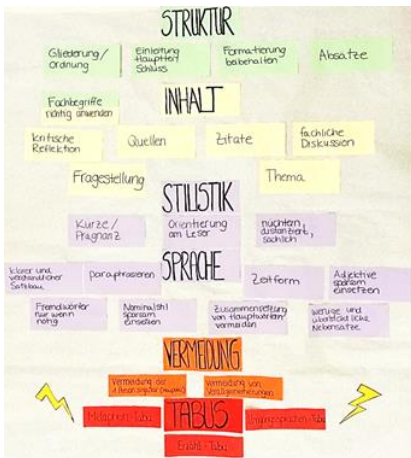 STRUKTUR
Gliederung/
Ordnung
Einleitung
Hauptteil
Schluss
Formatierung
beibehalten
Absätze
Fachbegriffe
richtig anwenden
INHALT
kritische
Reflektion
Quellen
Zitate
fachliche
Diskussion
Fragestellung
Thema
STILISTIK
Kürze/
Prägnanz
Orientierung
am Leser
nüchtern,
distanziert,
sachlich
SPRACHE
klarer und
verständlicher
Satzbau
paraphrasieren
Zeitform
Adjektive
sparsam
einsetzen
Fremdwörter
nur wenn
nötig
Nominalstil
sparsam
einsetzen
Zusammensetzung
von Hauptwörtern
vermeiden
wenige und
übersichtliche
Nebensätze
VERMEIDUNG
Vermeidung der
Vermeidung von
Verallgemeinerungen
TABUS
Metaphern-Tabu
Umgangssprachen-Tabu
Erzähl-Tabu